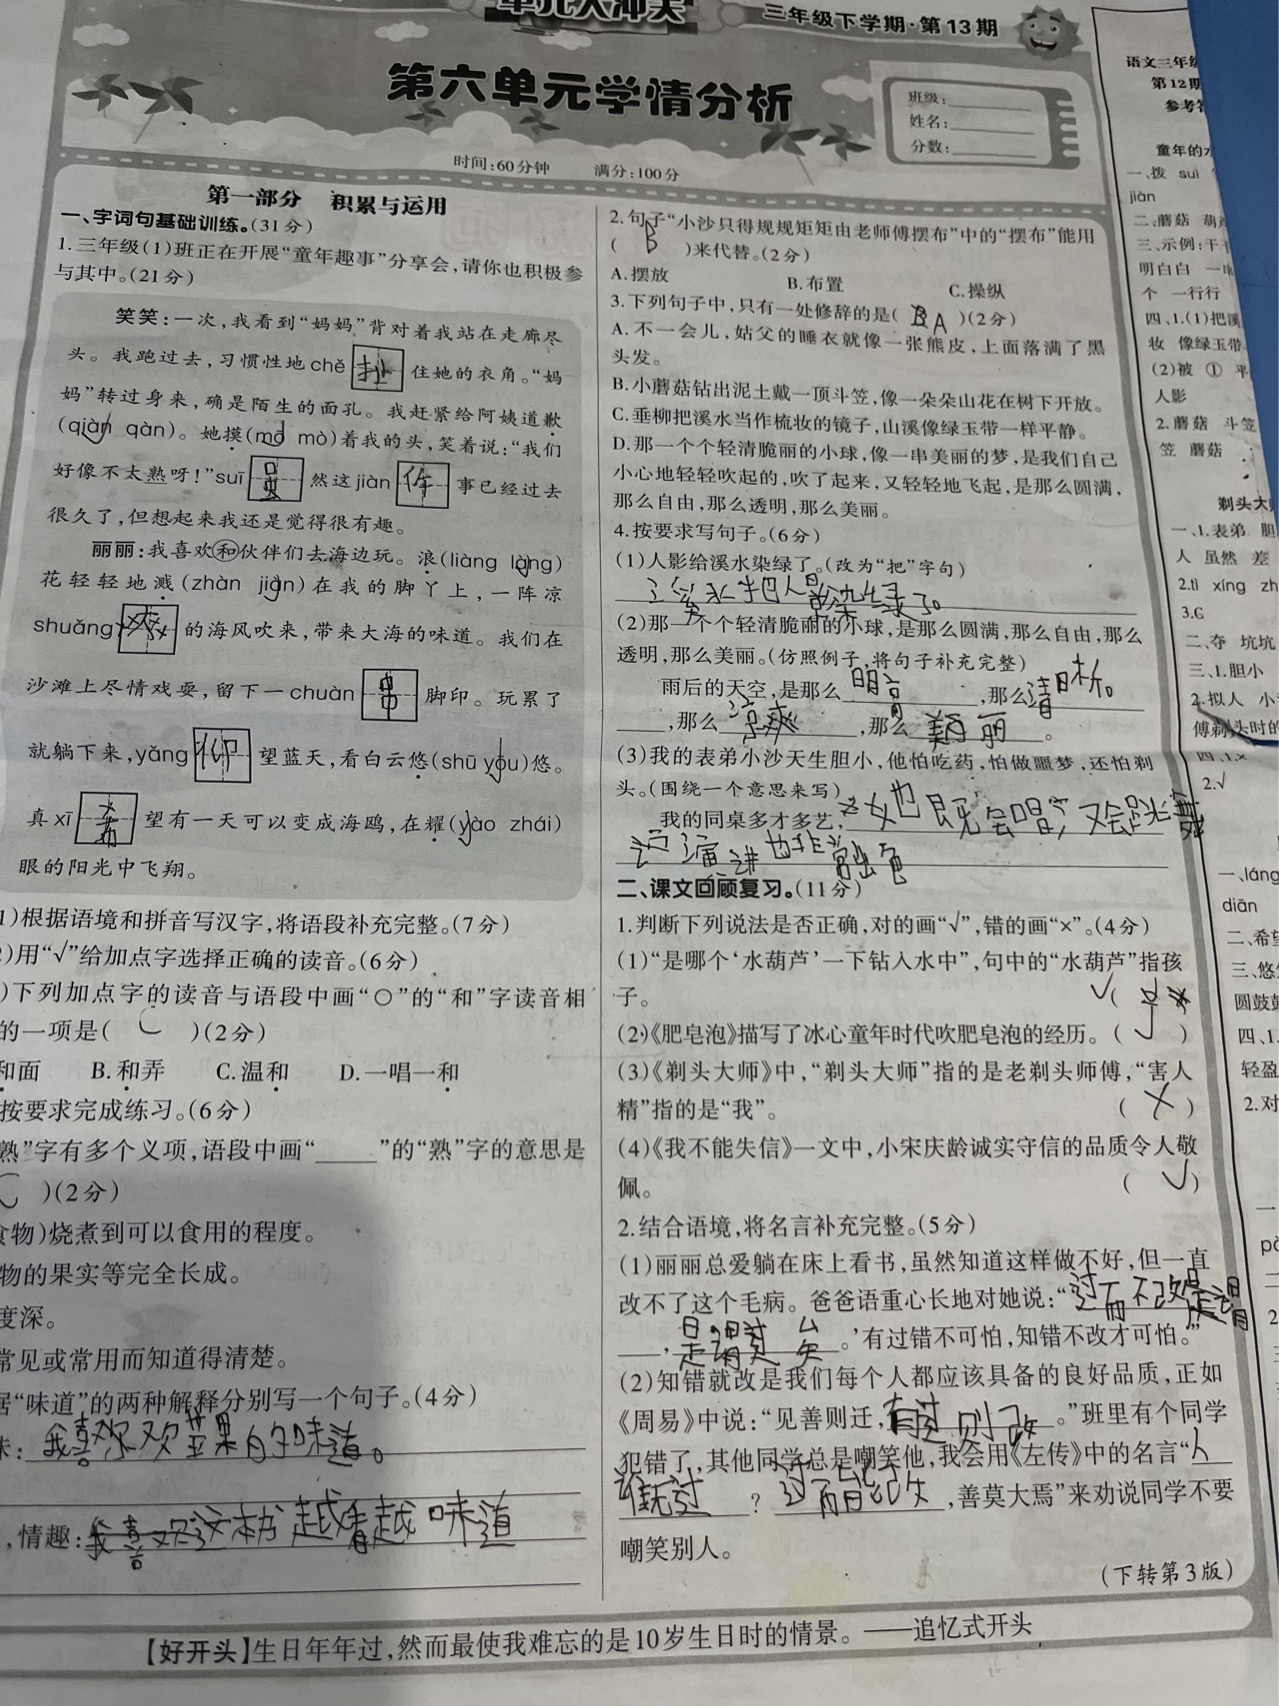 三年级下学期·第13期
第六单元学情分析
班级:
姓名:
分数:
时间:60分钟 满分:100分
第一部分 积累与运用
一、字词句基础训练。(31分)
1.三年级(1)班正在开展“童年趣事”分享会,请你也积极参
与其中。(21分)
笑笑:一次,我看到“妈妈”背对着我站在走廊尽
头。我跑过去,习惯性地chě 扯 住她的衣角。“妈
妈”转过身来,确是陌生的面孔。我赶紧给阿姨道歉
(qiàn qàn)。她摸(mō mò)着我的头,笑着说:“我们
好像不太熟呀!”suī 虽 然这jiàn 件 事已经过去
很久了,但想起来我还是觉得很有趣。
丽丽:我喜欢和伙伴们去海边玩。浪(liàng làng)
花轻轻地溅(zhàn jiàn)在我的脚丫上,一阵凉
shuǎng 爽 的海风吹来,带来大海的味道。我们在
沙滩上尽情戏耍,留下一chuàn 串 脚印。玩累了
就躺下来,yǎng 仰 望蓝天,看白云悠(shū yōu)悠。
真xī 希 望有一天可以变成海鸥,在耀(yào zhái)
眼的阳光中飞翔。
1)根据语境和拼音写汉字,将语段补充完整。(7分)
)用“√”给加点字选择正确的读音。(6分)
)下列加点字的读音与语段中画“○”的“和”字读音相
的一项是( C )(2分)
和面 B.和弄 C.温和 D.一唱一和
按要求完成练习。(6分)
熟”字有多个义项,语段中画“____”的“熟”字的意思是
)(2分)
食物)烧煮到可以食用的程度。
物的果实等完全长成。
度深。
常见或常用而知道得清楚。
据“味道”的两种解释分别写一个句子。(4分)
味: 我喜欢苹果的味道。
,情趣: 我喜欢这本书越看越味道
2.句子“小沙只得规规矩矩由老师傅摆布”中的“摆布”能用
( B )来代替。(2分)
A.摆放 B.布置 C.操纵
3.下列句子中,只有一处修辞的是( A )(2分)
A.不一会儿,姑父的睡衣就像一张熊皮,上面落满了黑
头发。
B.小蘑菇钻出泥土戴一顶斗笠,像一朵朵山花在树下开放。
C.垂柳把溪水当作梳妆的镜子,山溪像绿玉带一样平静。
D.那一个个轻清脆丽的小球,像一串美丽的梦,是我们自己
小心地轻轻吹起的,吹了起来,又轻轻地飞起,是那么圆满,
那么自由,那么透明,那么美丽。
4.按要求写句子。(6分)
(1)人影给溪水染绿了。(改为“把”字句)
溪水把人影染绿了
(2)那一个个轻清脆丽的小球,是那么圆满,那么自由,那么
透明,那么美丽。(仿照例子,将句子补充完整)
雨后的天空,是那么 明亮 ,那么 清晰。
,那么 凉爽 ,那么 美丽 。
(3)我的表弟小沙天生胆小,他怕吃药,怕做噩梦,还怕剃
头。(围绕一个意思来写)
我的同桌多才多艺, 她既会唱, 又会跳舞
演讲也非常出色
二、课文回顾复习。(11分)
1.判断下列说法是否正确,对的画“√”,错的画“×”。(4分)
(1)“是哪个‘水葫芦’一下钻入水中”,句中的“水葫芦”指孩
子。 √( )
(2)《肥皂泡》描写了冰心童年时代吹肥皂泡的经历。( √ )
(3)《剃头大师》中,“剃头大师”指的是老剃头师傅,“害人
精”指的是“我”。 ( × )
(4)《我不能失信》一文中,小宋庆龄诚实守信的品质令人敬
佩。 ( √ )
2.结合语境,将名言补充完整。(5分)
(1)丽丽总爱躺在床上看书,虽然知道这样做不好,但一直
改不了这个毛病。爸爸语重心长地对她说:“ 过而不改是谓
, 是谓过矣 。’有过错不可怕,知错不改才可怕。”
(2)知错就改是我们每个人都应该具备的良好品质,正如
《周易》中说:“见善则迁, 有过则改 。”班里有个同学
犯错了,其他同学总是嘲笑他,我会用《左传》中的名言“ 人
谁无过 ? 过而能改 ,善莫大焉”来劝说同学不要
嘲笑别人。
(下转第3版)
【好开头】生日年年过,然而最使我难忘的是10岁生日时的情景。——追忆式开头
语文三年级
第12期
参考答
童年的水
一、拨 suì
jiàn
二、蘑菇
三、示例:干干
明白白
个 一行行
四、1.(1)把溪
妆 像绿玉带
(2)被 ① 平
人影
2.蘑菇 斗笠
笠 蘑菇
剃头大
一、1.表弟 胆
人 虽然 差
2.tì xíng
3.C
二、夺 坑坑
三、1.胆小
2.拟人 小
傅剃头时的
四、1.×
2.√
diān
二、希望
三、悠
圆鼓鼓
四、1.
轻盈
2.对